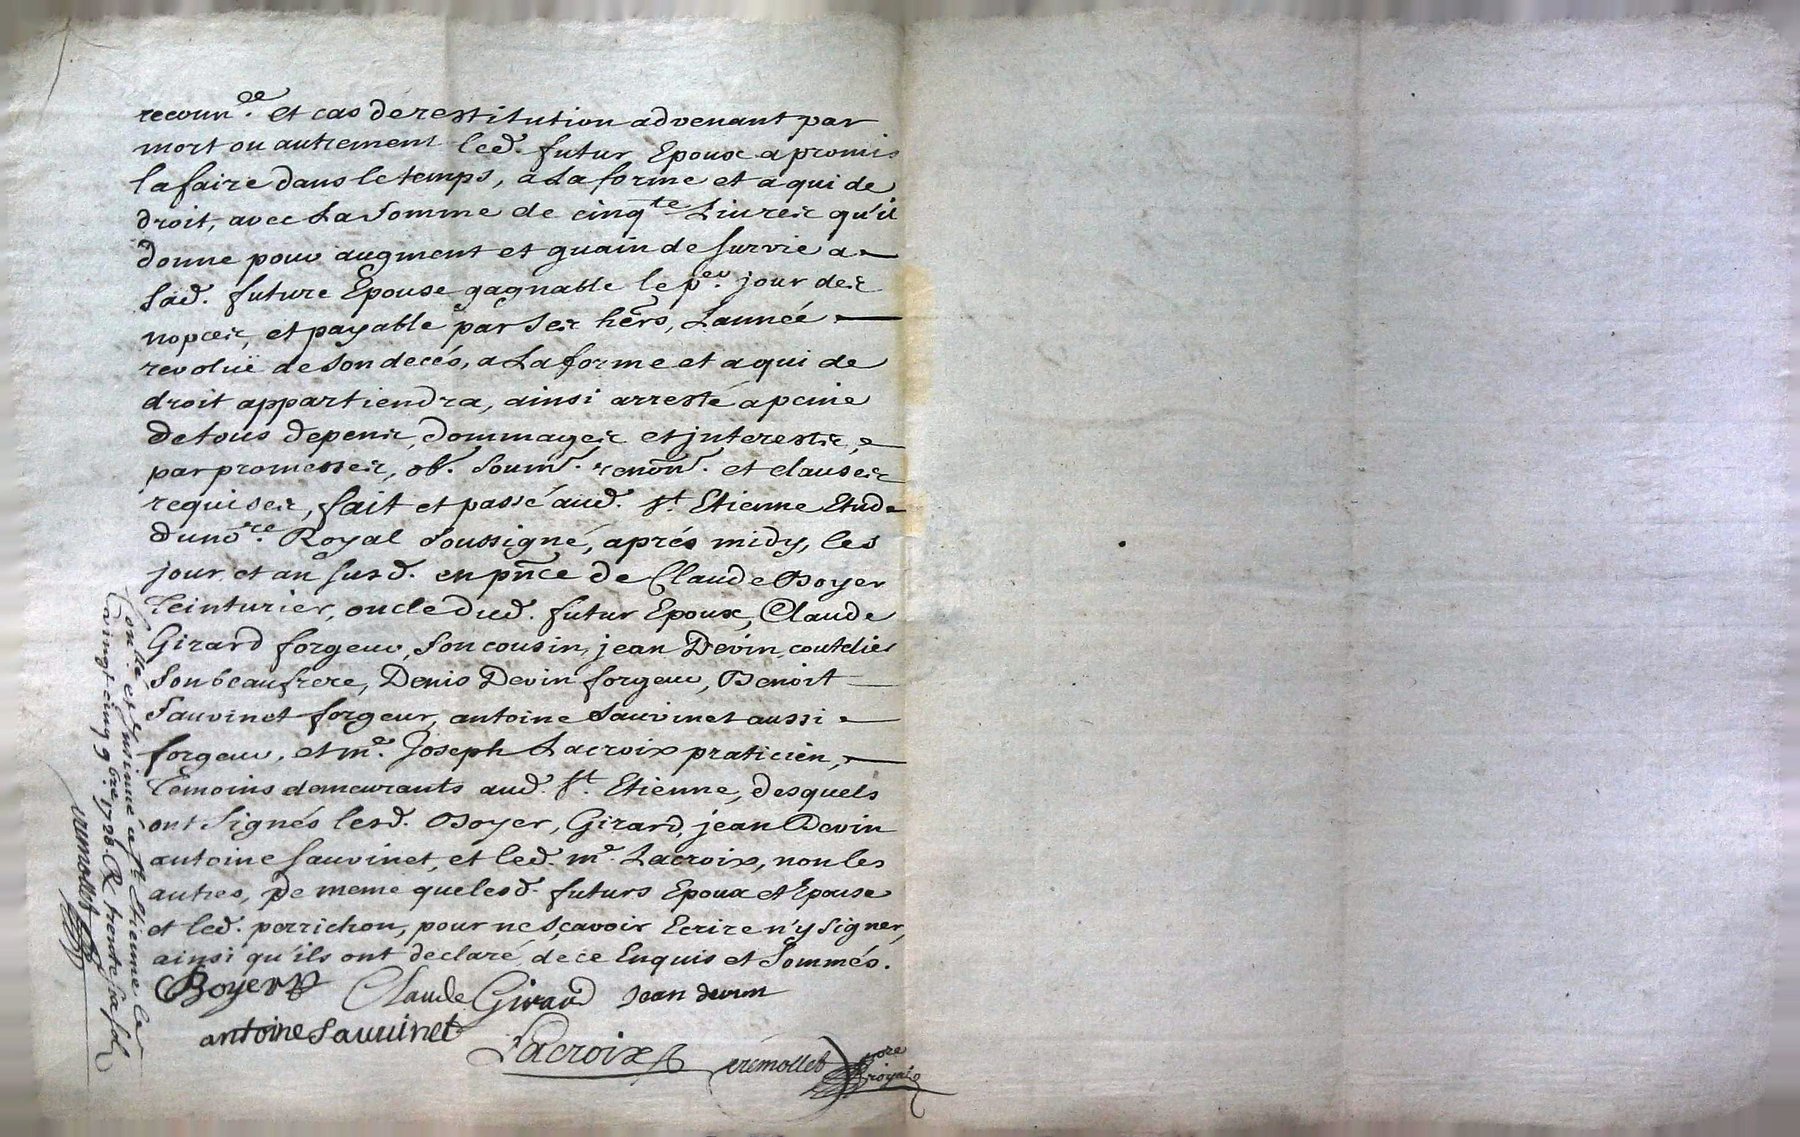 reconn.ce et cas de restitution advenant par
mort ou autrement led. futur Epoux a promis
la faire dans le temps, a La forme et a qui de
droit, avec La Somme de cinq.te Livres qu'il
donne pour augment et guain de survie a
sad. future Epouse gagnable le p.er jour des
nopces, et payable par ses hers, L'année
revoluë de son decés, a La forme et a qui de
droit appartiendra, ainsi arresté a peine
de tous depens, dommages et jnterests,
par promesses, ob. soum. renon. et clauses
requises, fait et passé aud. St. Etienne Etude
du no.re Royal soussigné, aprés midy, les
jour et an susd. en pnce de Claude Boyer
teinturier, oncle dud. futur Epoux, Claude
Girard forgeur, son cousin, jean Devin, coutelier
son beaufrere, Denis Devin forgeur, Benoit
Sauvinet forgeur, antoine Sauvinet aussi
forgeur, et m.e Joseph Lacroix praticien,
temoins demeurants aud. St. Etienne, desquels
ont signés lesd. Boyer, Girard, jean Devin
antoine Sauvinet, et led. m.e Lacroix, non les
autres, de meme que lesd. futurs Epoux et Epouse
et led. perrichon, pour ne sçavoir Ecrire n'y signer,
ainsi qu'ils ont declaré, de ce Enquis et sommés.
Boyer Claude Girard Jean devin
antoine sauuinet
Lacroix cremollet nore royal
Con.lle et jnsinué à St. Etienne le
vaingt cinq 9.bre 1728 R trente six sols
cremollet